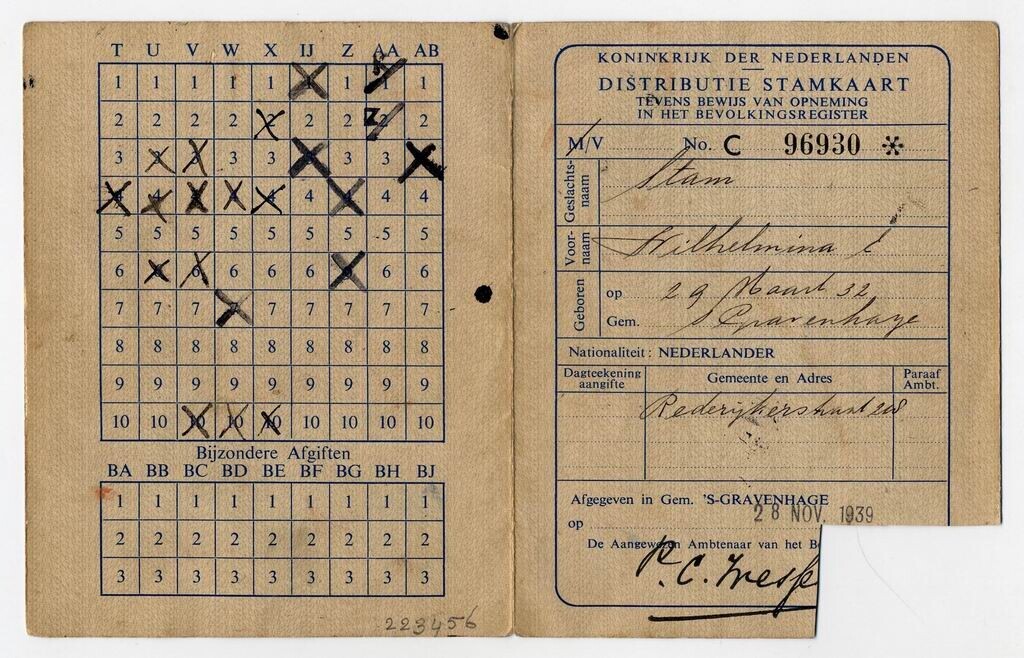 T U V W X IJ Z AA AB
1 1 1 1 1 1 1 1 1
2 2 2 2 2 2 2 2 2
3 3 3 3 3 3 3 3 3
4 4 4 4 4 4 4 4 4
5 5 5 5 5 5 5 5 5
6 6 6 6 6 6 6 6 6
7 7 7 7 7 7 7 7 7
8 8 8 8 8 8 8 8 8
9 9 9 9 9 9 9 9 9
10 10 10 10 10 10 10 10 10
Bijzondere Afgiften
BA BB BC BD BE BF BG BH BJ
1 1 1 1 1 1 1 1 1
2 2 2 2 2 2 2 2 2
3 3 3 3 3 3 3 3 3
223456
KONINKRIJK DER NEDERLANDEN
DISTRIBUTIE STAMKAART
TEVENS BEWIJS VAN OPNEMING
IN HET BEVOLKINGSREGISTER
M/V No. C 96930 *
Geslachts-
naam
Stam
Voor-
naam
Wilhelmina
Geboren
op 29 Maart 32
Gem. 's Gravenhage
Nationaliteit: NEDERLANDER
Dagteekening
aangifte
Gemeente en Adres
Paraaf
Ambt.
Rederijkerstraat 208
Afgegeven in Gem. 'S-GRAVENHAGE
op 28 NOV. 1939
De Aangewezen Ambtenaar van het B